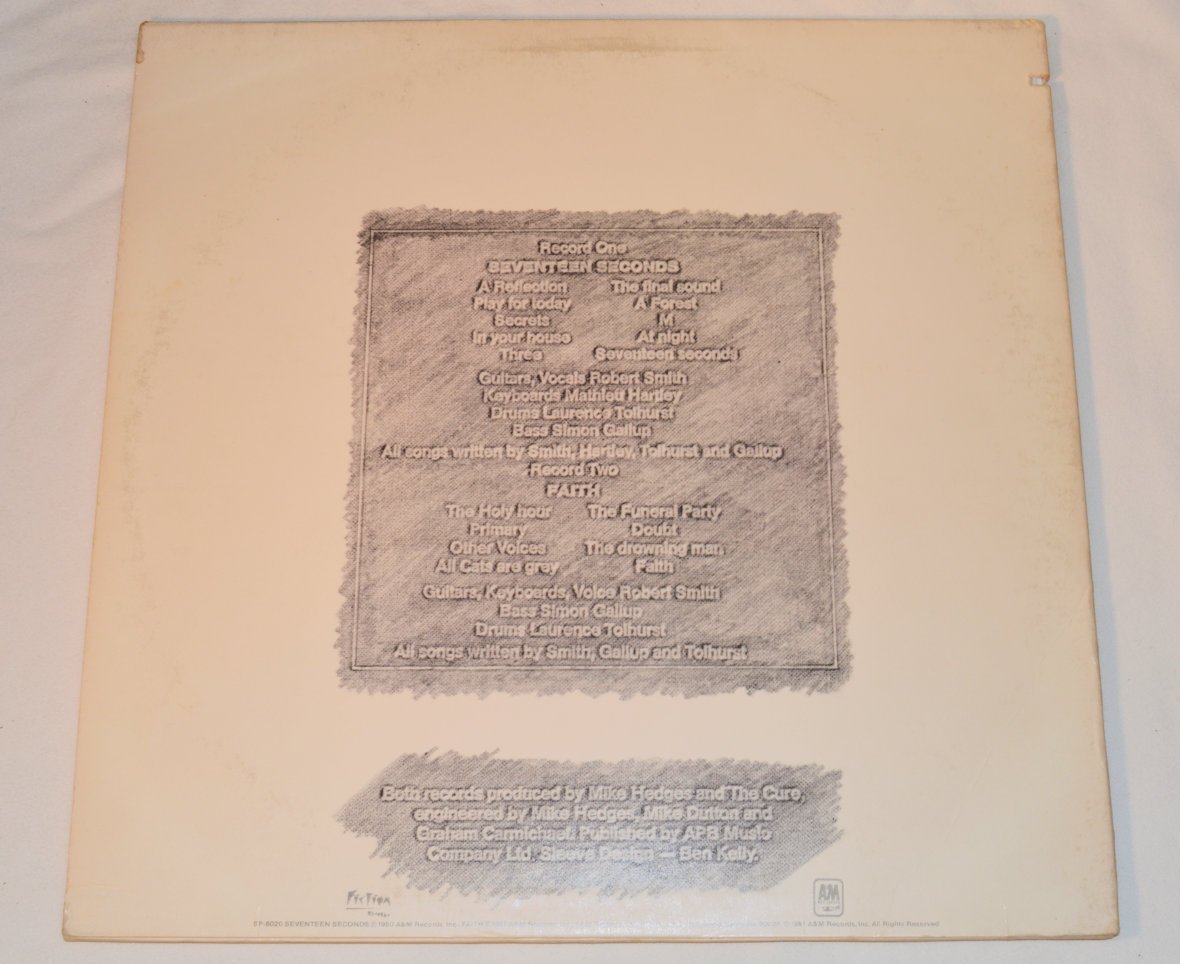 Record One
SEVENTEEN SECONDS
A Reflection The final sound
Play for today A Forest
Secrets M
In your house At night
Three Seventeen seconds
Guitars, Vocals Robert Smith
Keyboards Mathieu Hartley
Drums Laurence Tolhurst
Bass Simon Gallup
All songs written by Smith, Hartley, Tolhurst and Gallup
Record Two
FAITH
The Holy hour The Funeral Party
Primary Doubt
Other Voices The drowning man
All Cats are grey Faith
Guitars, Keyboards, Voice Robert Smith
Bass Simon Gallup
Drums Laurence Tolhurst
All songs written by Smith, Gallup and Tolhurst
Both records produced by Mike Hedges and The Cure,
engineered by Mike Hedges, Mike Dutton and
Graham Carmichael. Published by APB Music
Company Ltd. Sleeve Design — Ben Kelly.
Fiction
A&M
SP-6020 SEVENTEEN SECONDS © 1980 A&M Records, Inc. © 1981 A&M Records, Inc. All Rights Reserved